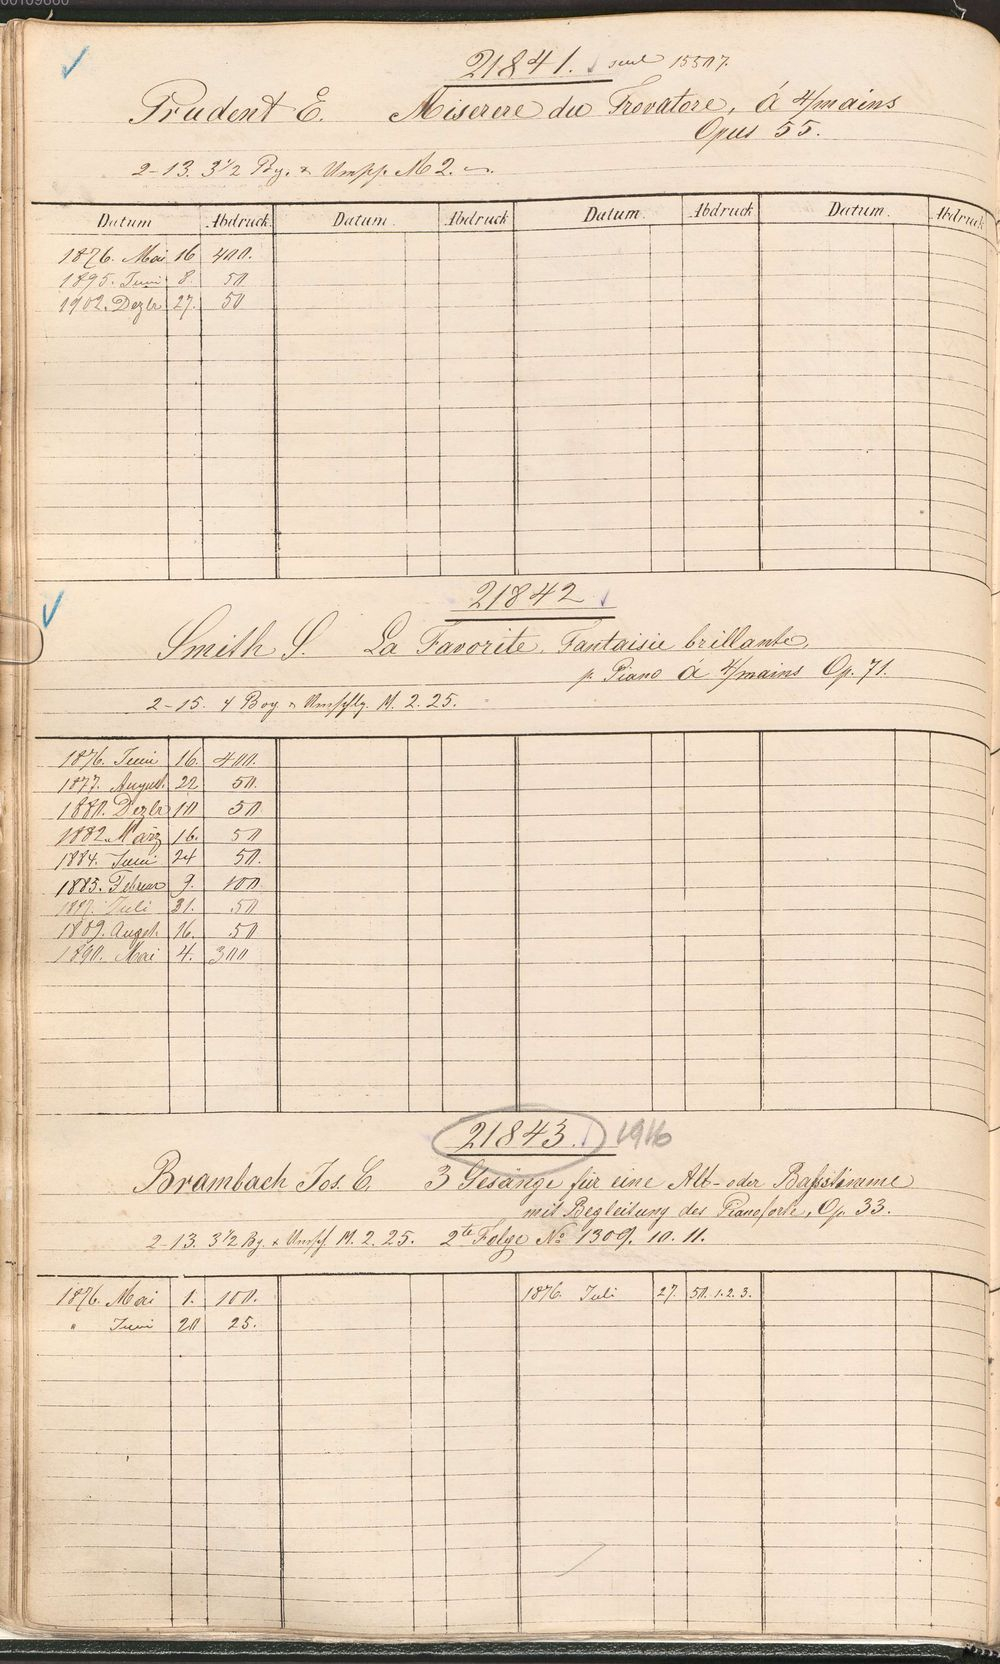 21841. 15507.
Prudent E. Miserere du Trovatore, á 4/mains
Opus 55.
2-13. 3 1/2 Bg. M 2.
Datum Abdruck Datum. Abdruck Datum. Abdruck Datum. Abdruck
1876. Mai 16 400.
1895. Juni 8 50
1902. Dezbr 27. 50
21842
Smith S. La Favorite, Fantaisie brillante,
p. Piano á 4/mains Op. 71.
2-15. 4 Bog Umschlg. M. 2. 25.
1876. Juni 16. 400.
1877. August. 22 50.
1880. Dezbr 10 50
1882. März 16. 50
1884. Juni 24 50.
1885. Februar 9. 100
1887. Juli 31. 50
1889. Augst. 16. 50
1890. Mai 4. 300
21843. 1916
Brambach Jos. C. 3 Gesänge für eine Alt- oder Baßstimme
mit Begleitung des Pianoforte, Op. 33.
2-13. 3 1/2 Bg. Umschl. M. 2. 25. 2te Folge No 1309. 10. 11.
1876. Mai 1. 100. 1876. Juli 27. 50. 1. 2. 3.
" Juni 20 25.